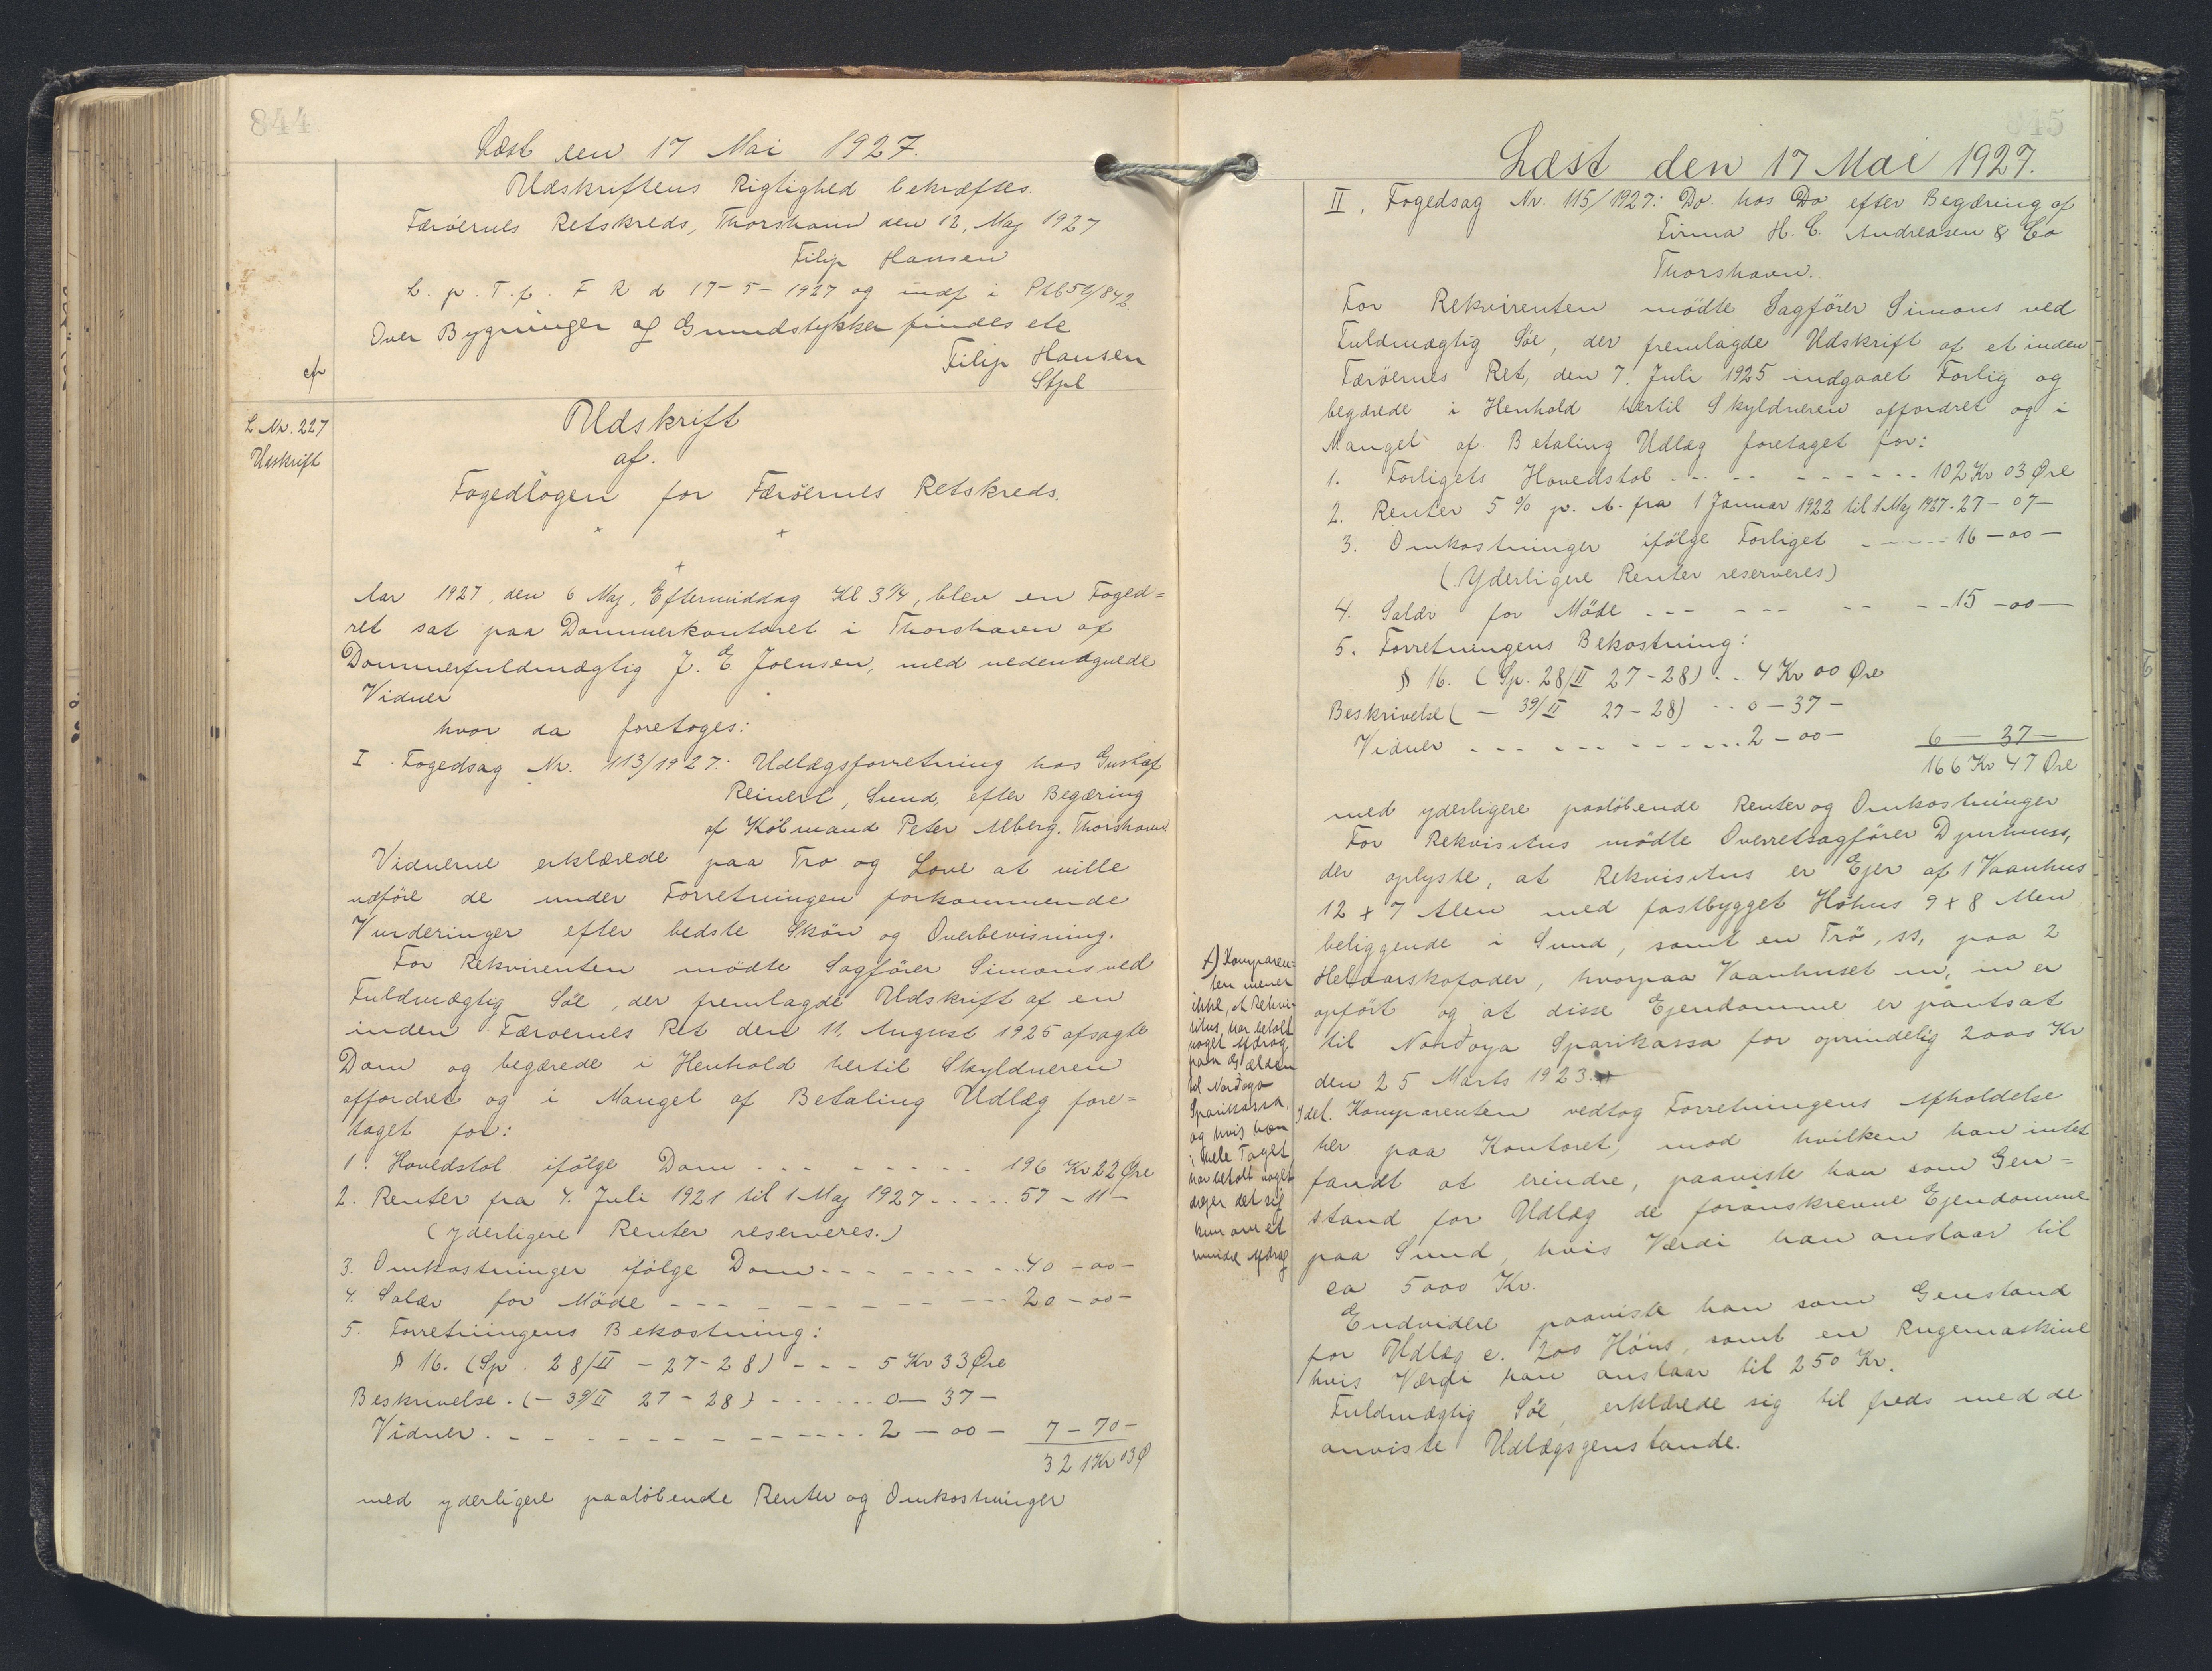 844
Læst den 17 Mai 1927.
Udskriftens Rigtighed bekræftes.
Færöernes Retskreds, Thorshavn den 12, Maj 1927
Filip Hansen
L. p. T. f. F R d 17-5-1927 og indf i
Over Bygninger og Grundstykker findes ele
Filip Hansen
Stpl
L Nr. 227
Udskrift
Udskrift
af.
Fogedbogen for Færöernes Retskreds.
Aar 1927, den 6 Maj, Eftermiddag Kl 3 1/4, blev en Foged=
ret sat paa Dommerkontoret i Thorshavn af
Dommerfuldmægtig J. E Joensen, med nedenægnede
Vidner
hvor da foretoges:
I Fogedsag Nr. 113/1927: Udlægsforretning hos Gustaf
Reinert, Sund, efter Begæring
af Köbmand Peter Alberg. Thorshavn.
Vidnerne erklærede paa Tro og Love at ville
udföre de under Forretningen forkommende
Vurderinger efter bedste Skön og Overbevisning.
For Rekvirenten mödte Sagförer Simons ved
Fuldmægtig Söe, der fremlagde Udskrift af en
inden Færoernes Ret den 11, August 1925 afsagte
Dom og begærede i Henhold hertil Skyldneren
affordret og i Mangel af Betaling Udlæg fore=
taget for:
1. Hovedstol ifölge Dom - - - - - - - - - 196 Kr 22 Øre
2. Renter fra 4. Juli 1921 til 1 Maj 1927 - - - - - 57 - 11 -
(yderligere Renter reserveres.)
3. Omkostninger ifölge Dom - - - - - - - - - 40 - 00 -
4. Salær for Möde - - - - - - - - - - - - 20 - 00 -
5. Forretningens Bekostning:
§ 16. (Sp. 28/II - 27-28) - - - 5 Kr 33 Øre
Beskrivelse. (- 39/II 27-28) - - - - - - 0 - 37 -
Vidner. - - - - - - - - - - - - 2 - 00 - 7 - 70 -
321 Kr 03 Ø
med yderligere paalöbende Renter og Omkostninger
845
Læst den 17 Mai 1927.
II. Fogedsag Nr. 115/1927: Do. hos Do efter Begæring af
Firma H. C. Andreasen & Co
Thorshavn.
For Rekvirenten mödte Sagförer Simons ved
Fuldmægtig Söe, der fremlagde Udskrift af et inden
Færöernes Ret, den 7. Juli 1925 indgaaet Forlig og
begærede i Henhold hertil Skyldneren affordret og i
Mangel af Betaling Udlæg foretaget for:
1. Forligets Hovedstol - - - - - - - - - - 102 Kr 03 Øre
2. Renter 5 % p. A. fra 1 Januar 1922 til 1 Maj 1927 - 27 - 07 -
3. Omkostninger ifölge Forliget - - - - - 16 - 00 -
(Yderligere Renter reserveres)
4. Salær for Möde - - - - - - - - - - 15 - 00 -
5. Forretningens Bekostning:
§ 16. (Sp. 28/II 27-28) - - 4 Kr 00 Øre
Beskrivelse (- 39/II 27-28) - - 0 - 37 -
Vidner - - - - - - - - - - 2 - 00 - 6 - 37 -
166 Kr 47 Øre
med yderligere paalöbende Renter og Omkostninger
For Rekvisitus mödte Overretsagförer Djurhuus,
der oplyste, at Rekvisitus er Ejer af 1 Vaanhus
12 x 7 Alen med fastbygget Höhus 9 x 8 Alen
beliggende i Sund, samt en Trö, ss, paa 2
Helaarskofoder, hvorpaa Vaanhuset m, m er
opfört og at disse Ejendomme er pantsat
til Nordoya Sparikassa for oprindelig 2000 Kr
den 25 Marts 1923.
+) Komparen=
ten mener
ikke, at Rekvi-
situs, har betalt
noget Afdrag
paa Gælden
til Nordoya
Sparikassa,
og hvis han
i hele Taget
har betalt noget
dreier det sig
kun om et
mindre Afdrag
Komparenten vedtog Forretningens Afholdelse
her paa Kontoret, mod hvilken han intet
fandt at erindre, paaviste han som Gen=
stand for Udlæg de foranskrevne Ejendomme
paa Sund, hvis Værdi han anslaar til
ca 5000 Kr.
Endvidere paaviste han som Genstand
for Udlæg c. 200 Höns, samt en Rugemaskine
hvis Værdi han anslaar til 250 Kr.
Fuldmægtig Söe, erklærede sig til freds med de
anviste Udlægsgenstande.